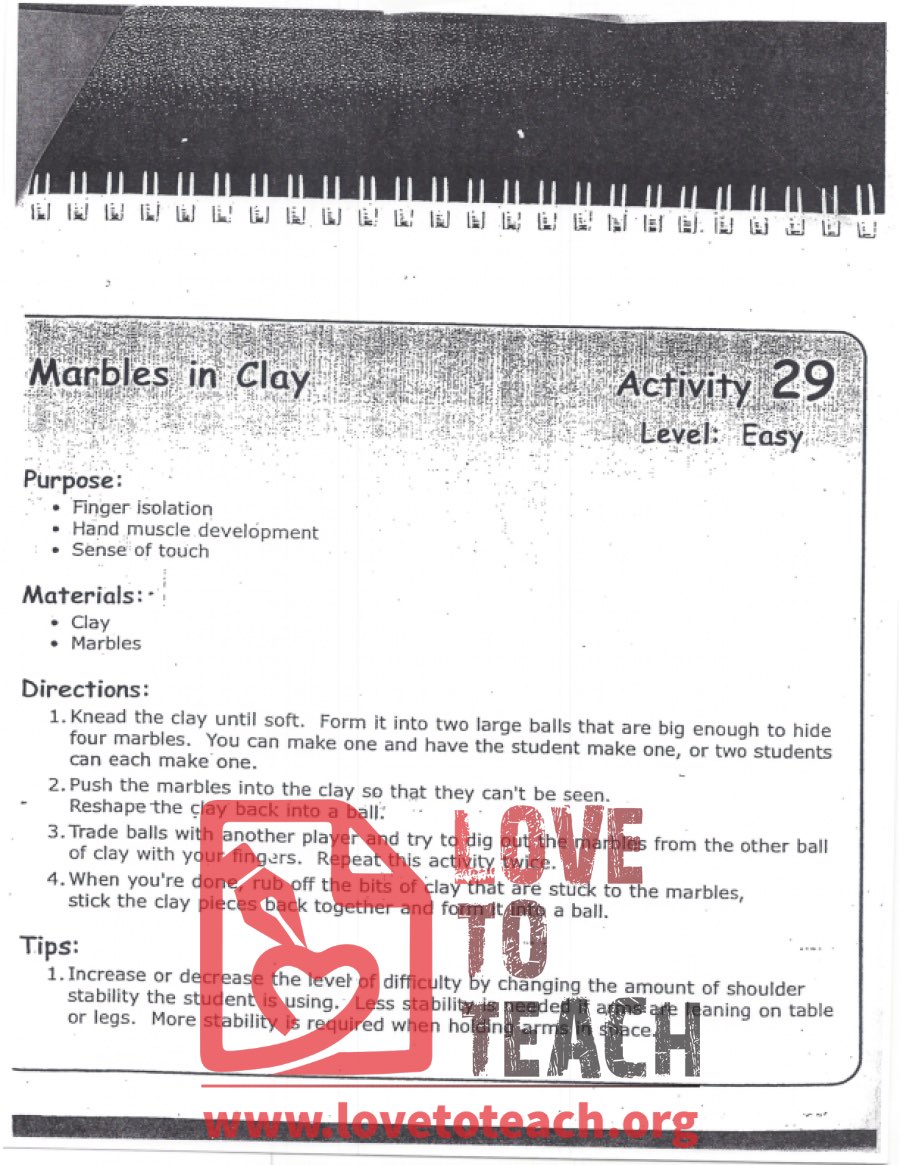 Marbles in Clay
Activity 29
Level: Easy
Purpose:
• Finger isolation
• Hand muscle development
• Sense of touch
Materials:
• Clay
• Marbles
Directions:
1. Knead the clay until soft. Form it into two large balls that are big enough to hide
four marbles. You can make one and have the student make one, or two students
can each make one.
2. Push the marbles into the clay so that they can't be seen.
Reshape the clay back into a ball.
3. Trade balls with another player and try to dig out the marbles from the other ball
of clay with your fingers. Repeat this activity twice.
4. When you're done, rub off the bits of clay that are stuck to the marbles,
stick the clay pieces back together and form it into a ball.
Tips:
1. Increase or decrease the level of difficulty by changing the amount of shoulder
stability the student is using. Less stability is needed if arms are leaning on table
or legs. More stability is required when holding arms in space.
LOVE
TO
TEACH
www.lovetoteach.org